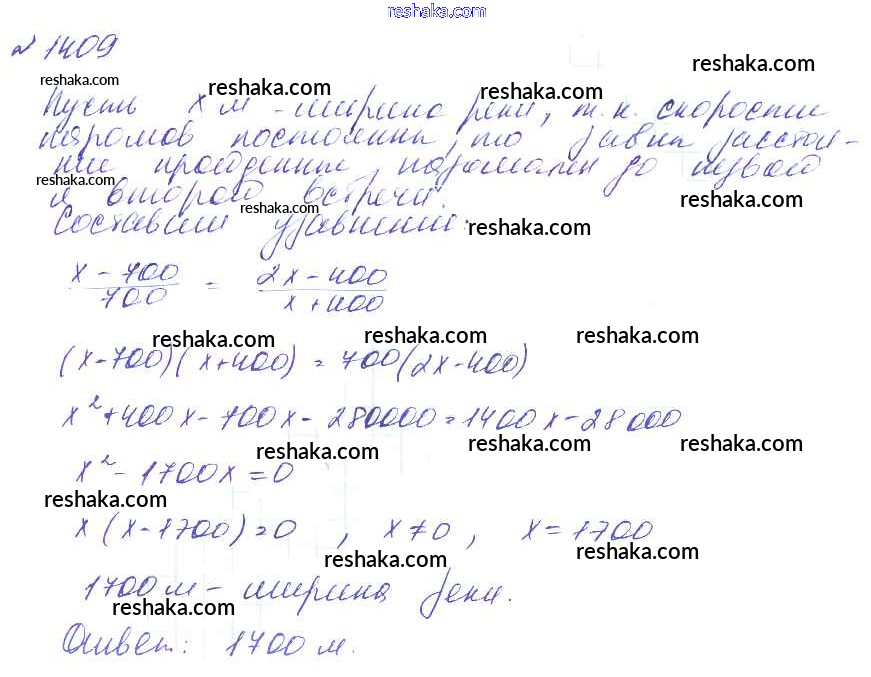 reshaka.com
№ 1409
reshaka.com
reshaka.com reshaka.com reshaka.com
Пусть x м - ширина реки, т.к. скорости
паромов постоянны, то равны расстоя-
ние пройденные паромами до первой
reshaka.com
и второй встречи.
reshaka.com reshaka.com
Составим уравнение:
reshaka.com
x - 700 / 700 = 2x - 400 / x + 400
reshaka.com reshaka.com reshaka.com
(x-700)(x+400) = 700(2x-400)
x² + 400x - 700x - 280000 = 1400x - 28000
reshaka.com reshaka.com reshaka.com
x² - 1700x = 0
reshaka.com
x(x-1700)=0, x≠0, x=1700
reshaka.com reshaka.com
1700 м - ширина реки.
reshaka.com
Ответ: 1700 м.